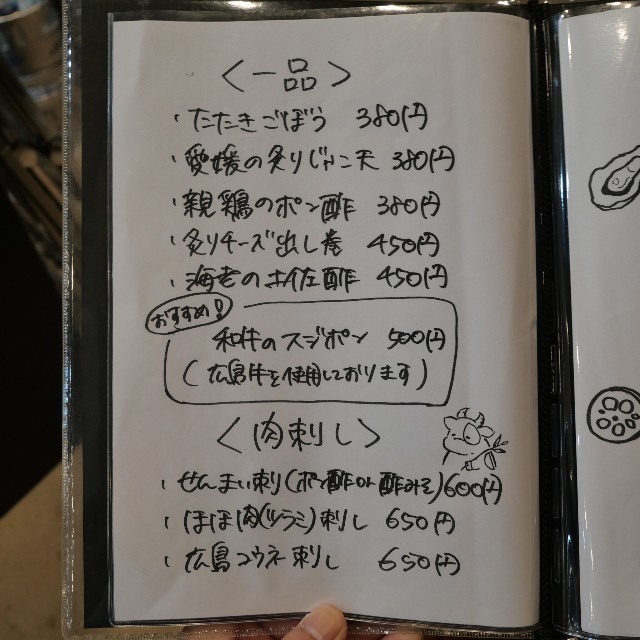 〈一品〉
・たたきごぼう 380円
・愛媛の炙りじゃこ天 380円
・親鶏のポン酢 380円
・炙りチーズ出し巻 450円
・海老の土佐酢 450円
おすすめ!
和牛のスジポン 500円
(広島牛を使用しております)
〈肉刺し〉
・せんまい刺し(ポン酢or酢みそ)600円
・ほほ肉(ツラミ)刺し 650円
・広島コウネ刺し 650円